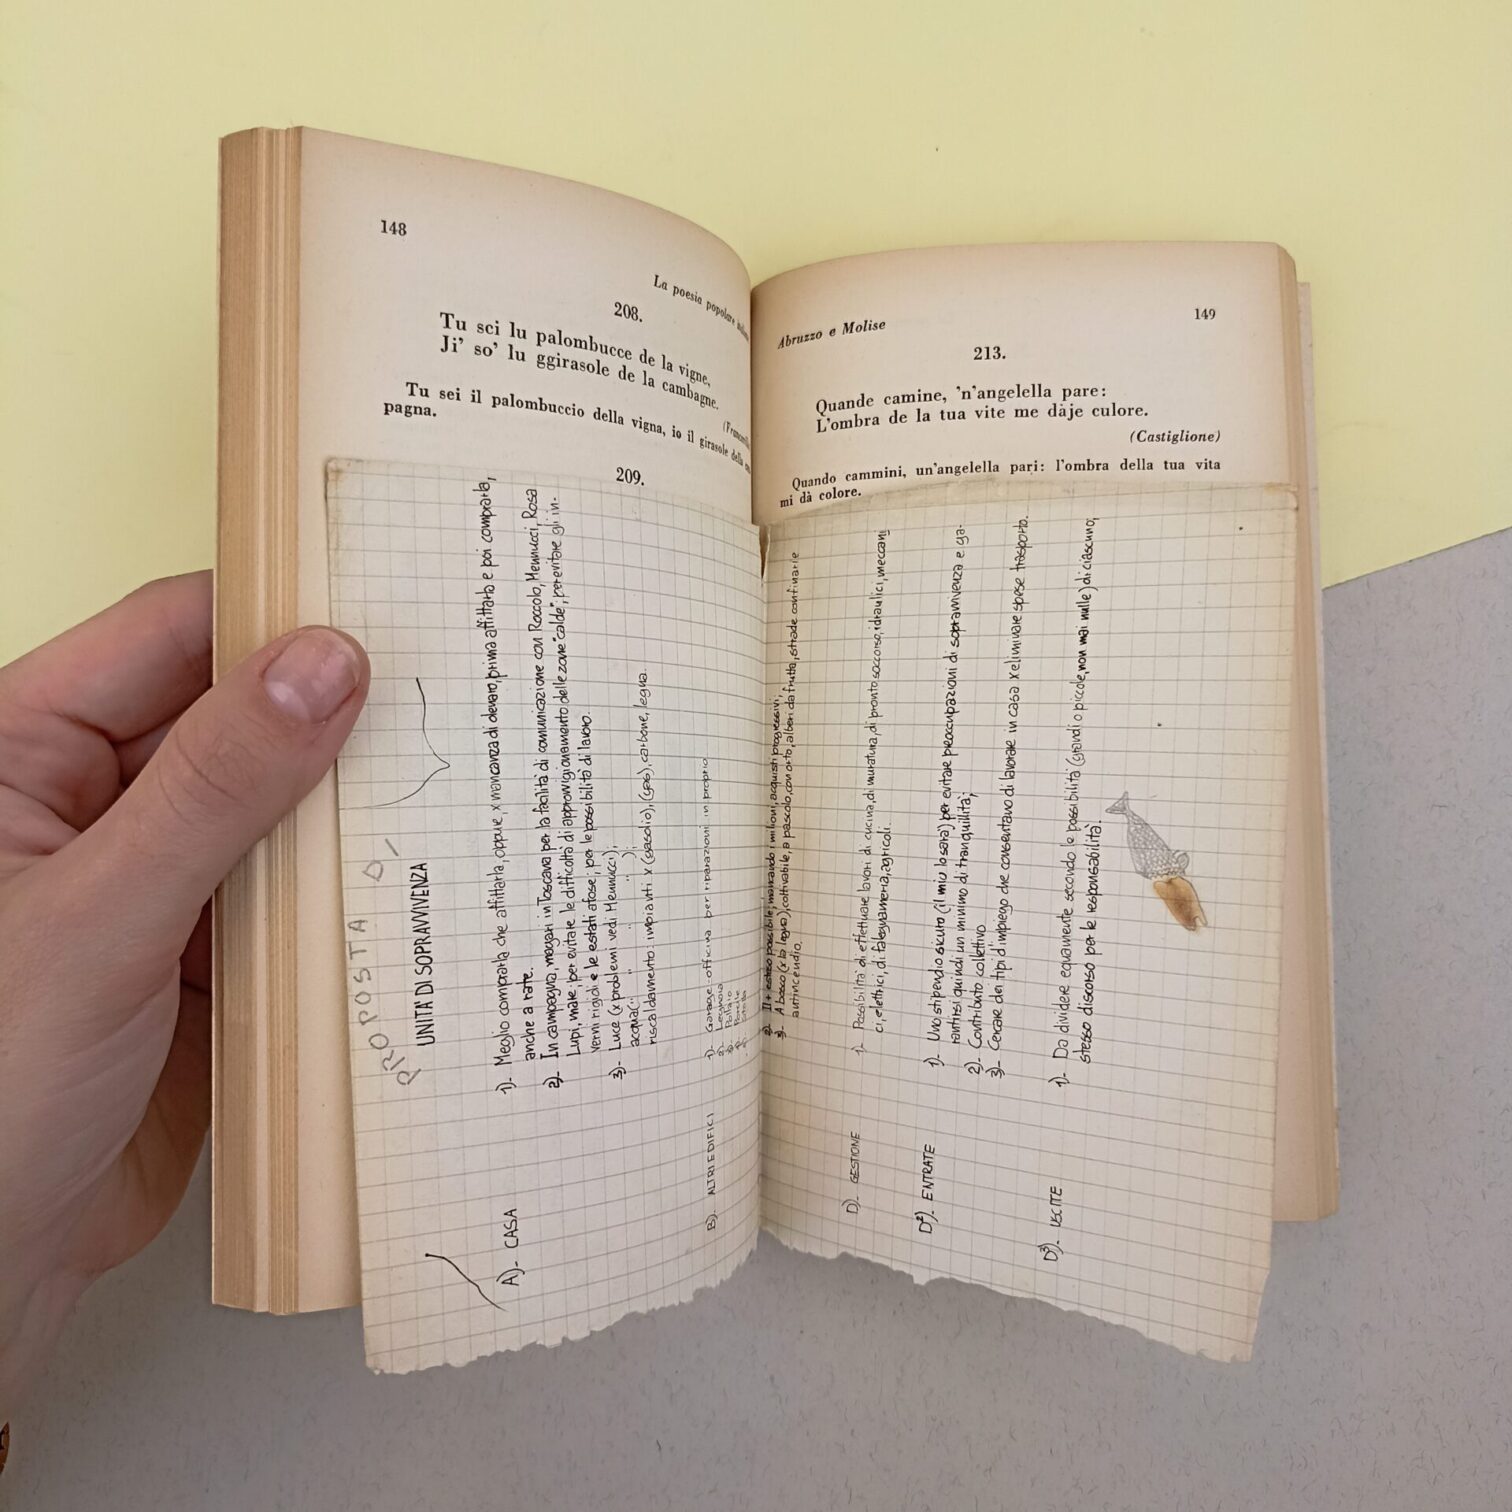 148
La poesia popolare
208.
Tu sci lu palombucce de la vigne,
Ji' so' lu ggirasole de la cambagne.
Tu sei il palombuccio della vigna, io il girasole della
pagna.
209.
149
Abruzzo e Molise
213.
Quande camine, 'n'angelella pare:
L'ombra de la tua vite me dàje culore.
(Castiglione)
Quando cammini, un'angelella pari: l'ombra della tua vita
mi dà colore.
PROPOSTA DI
UNITÀ DI SOPRAVVIVENZA
A)- CASA
1)- Meglio comprarla che affittarla, oppure, x mancanza di denaro, prima affittarla e poi comprarla,
anche a rate.
2)- In campagna, magari in Toscana per la facilità di comunicazione con Roccolo, Mennucci, Rosa
Lupi, mare; per evitare le difficoltà di approvvigionamento delle zone "calde"; per evitare gli in-
verni rigidi e le estati afose; per le possibilità di lavoro.
3)- Luce (x problemi vedi Mennucci);
acqua( " " " );
riscaldamento: impianti x (gasolio), (gas), carbone, legna.
B)- ALTRI EDIFICI
1)- Garage-officina per riparazioni in proprio
2)- Legnaia
3)- Pollaio
2)- Il + esteso possibile; mancando i milioni, acquisti progressivi;
3)- A bosco (x la legna), coltivabile, a pascolo, con orto, alberi da frutta, strade contr'narie
antincendio.
D)- GESTIONE
1)- Possibilità di effettuare lavori di cucina, di muratura, di pronto soccorso, idraulici, meccani
ci, elettrici, di falegnameria, agricoli.
D²)- ENTRATE
1)- Uno stipendio sicuro (il mio lo sarà) per evitare preoccupazioni di sopravvivenza e ga-
rantirsi quindi un minimo di tranquillità;
2)- Contributo collettivo
3)- Cercare dei tipi d'impiego che consentano di lavorare in casa x eliminare spese trasporto.
D³)- USCITE
1)- Da dividere equamente secondo le possibilità (grandi o piccole, non mai nulle) di ciascuno;
stesso discorso per le responsabilità.